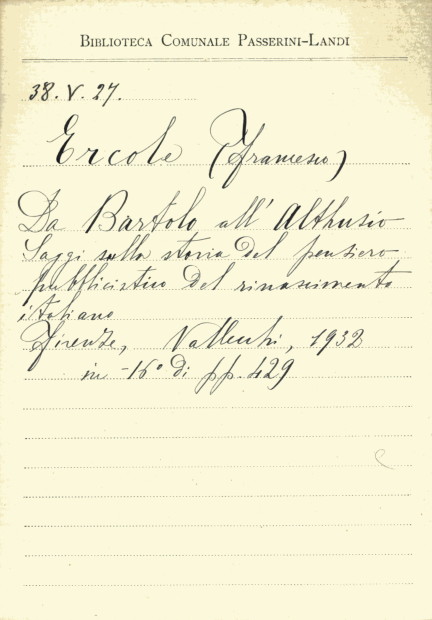 BIBLIOTECA COMUNALE PASSERINI-LANDI
38. V. 27.
Ercole (Francesco)
Da Bartolo all' Althusio
Saggi sulla storia del pensiero
pubblicistico del rinascimento
italiano
Firenze, Vallecchi, 1932
in -16° di pp. 429